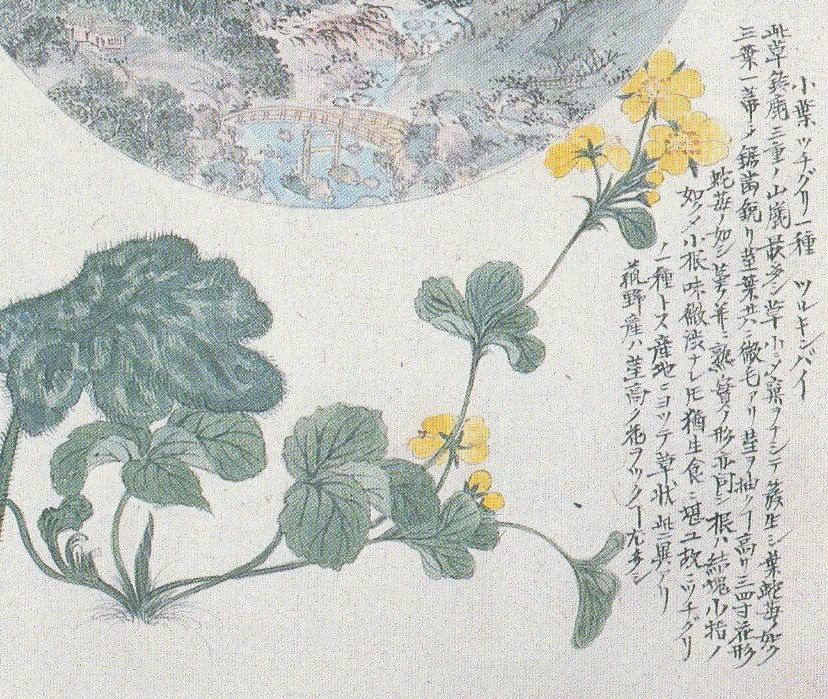 小葉ツチグリ一種 ツルキンバイ
此草鈴鹿三重ノ山麓最多シ草小〆窠ヲナシテ叢生シ葉蛇苺ノ如ク
三葉一蒂〆鋸歯鋭リ茎葉共ニ微毛アリ茎ヲ抽ヿ高サ三四寸花形
蛇苺ノ如シ熟実ノ形亦同シ根ハ結塊小指ノ
如〆小根味微渋ナレ𪜈猶生食ニ堪ユ故ニツチグリ
ノ一種トス産地ニヨツテ草状此ニ異アリ
菰野産ハ茎高ノ花ヲツクルヿ尤多シ